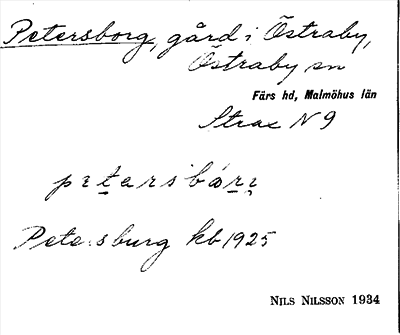 Petersborg, gård i Östraby,
Östraby sn
Färs hd, Malmöhus län
Strax N 9
Petersburg kb 1925
NILS NILSSON 1934